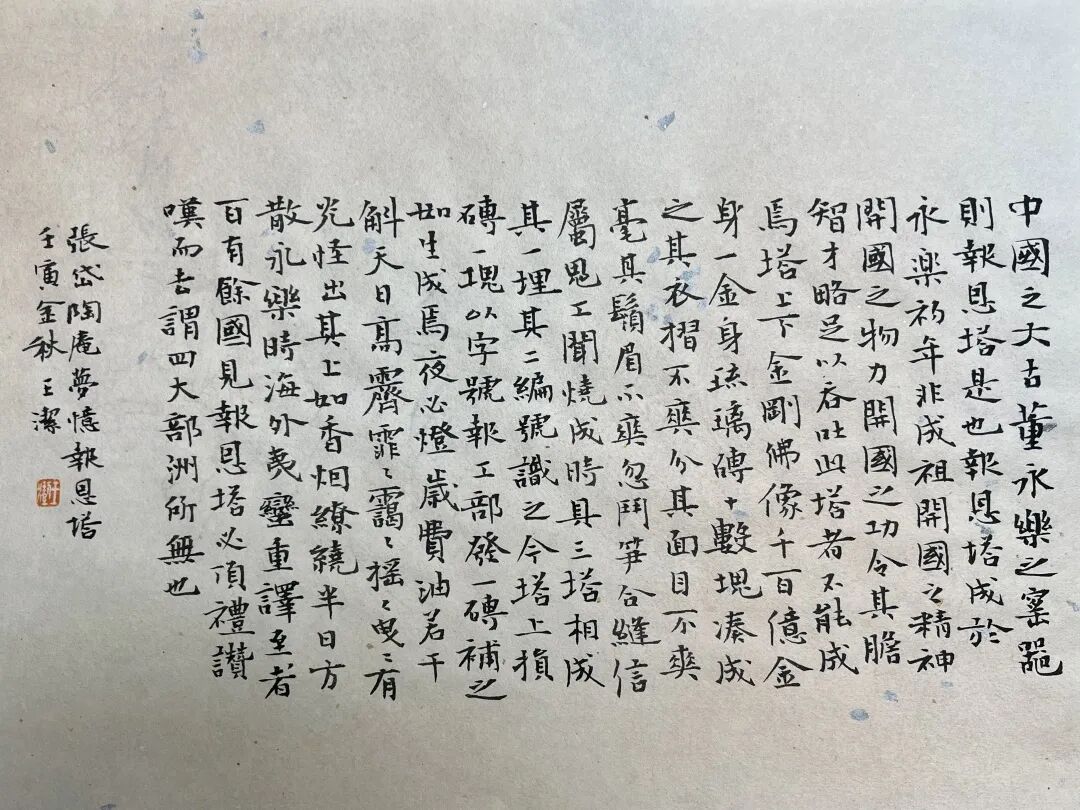 中國之大古董永樂之窰器
則報恩塔是也報恩塔成於
永樂初年非成祖開國之精神
開國之物力開國之功令其膽
智才略足以吞吐此塔者不能成
焉塔上下金剛佛像千百億金
身一金身琉璃磚十數塊湊成
之其衣摺不爽分其面目不爽
毫其鬚眉不爽忽鬥笋合縫信
屬鬼工聞燒成時具三塔相成
其一埋其二編號識之今塔上損
磚一塊以字號報工部發一磚補之
如生成焉夜必燈歲費油若干
斛天日高霽霏〻靄〻搖〻曳〻有
光怪出其上如香烟繚繞半日方
散永樂時海外夷蠻重譯至者
百有餘國見報恩塔必頂禮讚
嘆而去謂四大部洲所無也
張岱陶庵夢憶報恩塔
壬寅金秋王潔